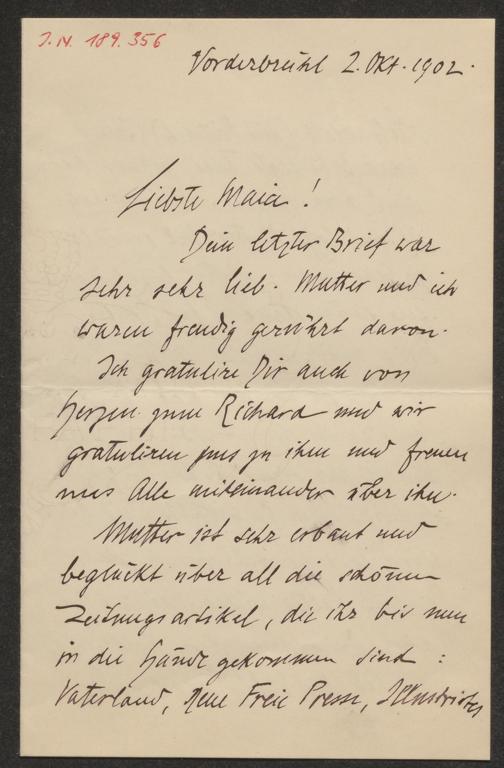 J.N. 189.356
Vorderbrühl 2. Okt. 1902.
Liebste Maia!
Dein letzter Brief war
sehr sehr lieb. Mutter und ich
waren freudig gerührt davon.
Ich gratulire Dir auch von
Herzen zum Richard und wir
gratuliren uns zu ihm und freuen
uns Alle miteinander über ihn.
Mutter ist sehr erbaut und
beglückt über all die schönen
Zeitungsartikel, die ihr bis nun
in die Hände gekommen sind:
Vaterland, Neue Freie Presse, Illustrirtes